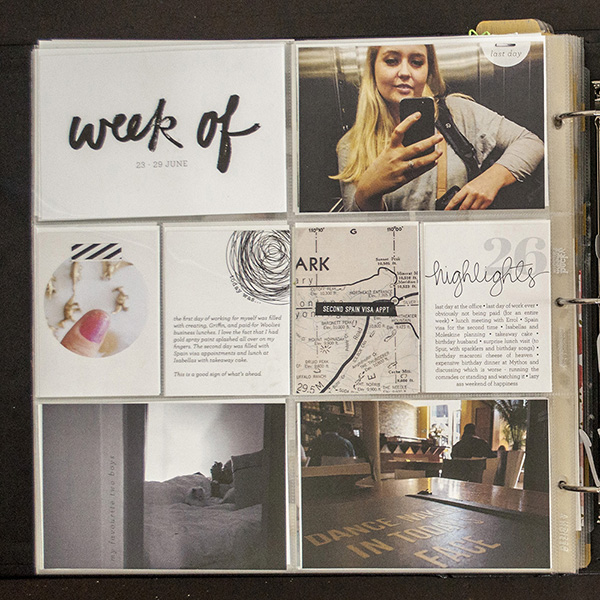 week of
23 - 29 JUNE
last day
today was...
the first day of working for myself was filled
with creating, Griffin, and paid-for Woolies
business lunches. I love the fact that I had
gold spray paint splashed all over my
fingers. The second day was filled with
Spain visa appointments and lunch at
Isabellas with takeaway cake.
This is a good sign of what's ahead.
110°00'
G
110°00'
ARK
SECOND SPAIN VISA APPT
29.5
26
highlights
last day at the office • last day of work ever •
obviously not being paid (for an entire
week) • lunch meeting with Errol • Spain
visa for the second time • Isabellas and
Moleskine planning • takeaway cake •
birthday husband • surprise lunch visit (to
Spur, with sparklers and birthday songs) •
birthday macaroni cheese of heaven •
expensive birthday dinner at Mythos and
discussing which is worse - running the
comrades or standing and watching it • lazy
ass weekend of happiness
my favourite two boys
DANCE
IN TODAY'S
FACE